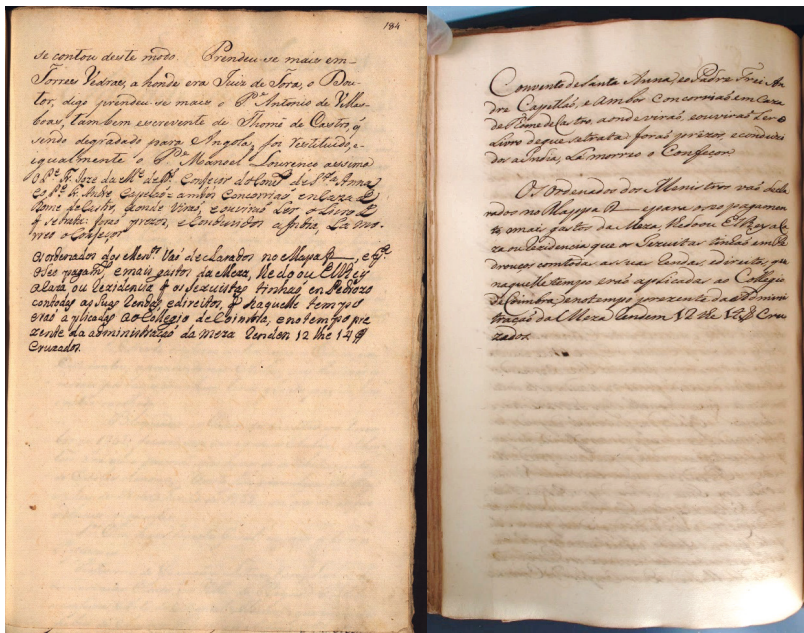 184
se contou deste modo. Prendeu-se mais em-
Torres Vedras, a honde era Juiz de Fora, o Dou-
tor, digo prendeu-se mais o Pe. Antonio de Villes-
boas, tambem escrevente de Thomé de Castro, q
sendo degradado para Angola, foi restituido, e-
igualmente o Pe. Manoel Lourenco assima
O Pe. Fr. Joze da Me. de Ds. Confeçor do Conto. de Sta. Anna
e o Pe. Fr. Andre Capelaõ: e ambos Concorriaõ, en Caza de
Rome de Castro, donde Viraõ, e ouviraõ Ler o Livro de
q se trata: foraõ prezos, e Conduzidos a India, La mo-
rreo o Confeçor
Os ordenados dos Menos. Vaõ declarados no Mapa R
o seo pagamto. e mais gastos da Mezza, Redou El Rey
a Caza ou Rezidenta q os Jezuistas tinhaõ en Pedrozo
con todas as suas Rendas, e direitos, q naquelle tempo
eraõ aplicadas ao Collegio de Coimbra, e no tempo pre
zente da administraçaõ da meza Renden 12 the 14
Cruzados.
Convento de Santa Anna, e o Padre Frei An-
dre Capellaõ, e Ambos Concorriaõ em Caza
de Rome de Castro, aonde viraõ, e ouviraõ Ler o
Livro de que se trata: foraõ prezos, e conduzi
dos a India, La morreo o Confeçor
Os Ordenados dos Menistros vaõ decla-
rados no Mappa R e para o seo pagamen-
to e mais gastos da Meza, Redou ElRey a Ca
za ou Rezidencia que os Jezuitas tinhaõ em Pe
drouço com todas as suas Rendas e direitos, que
naquelle tempo eraõ applicadas ao Collegio
de Coimbra, e no tempo prezente da Admini
traçaõ da Meza Rendem 12 the 14 Cru
zados.